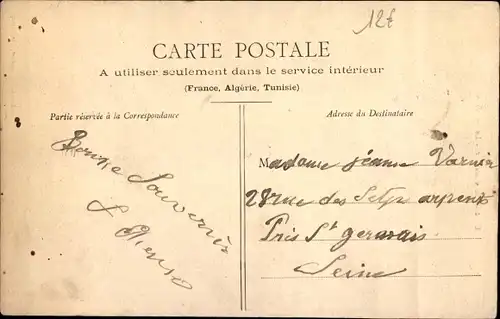 12€
CARTE POSTALE
A utiliser seulement dans le service intérieur
(France, Algérie, Tunisie)
Partie réservée à la Correspondance
Adresse du Destinataire
Bonne
Souvenir
Madame Jeanne Varnier
28 rue des Setp arpents
Près St gervais
Seine